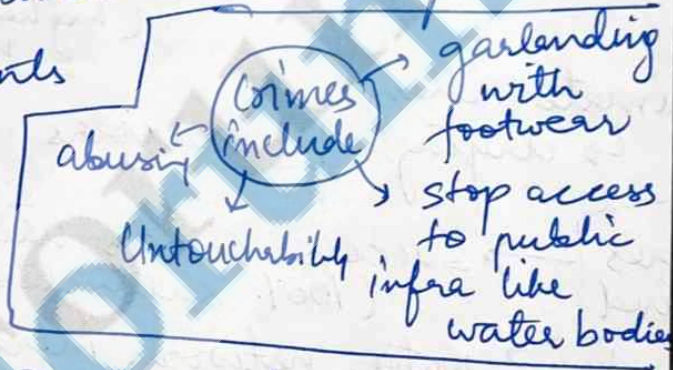 nts
Crimes
include
garlanding
with
footwear
abusing
Untouchability
stop access
to public
infra like
water bodies